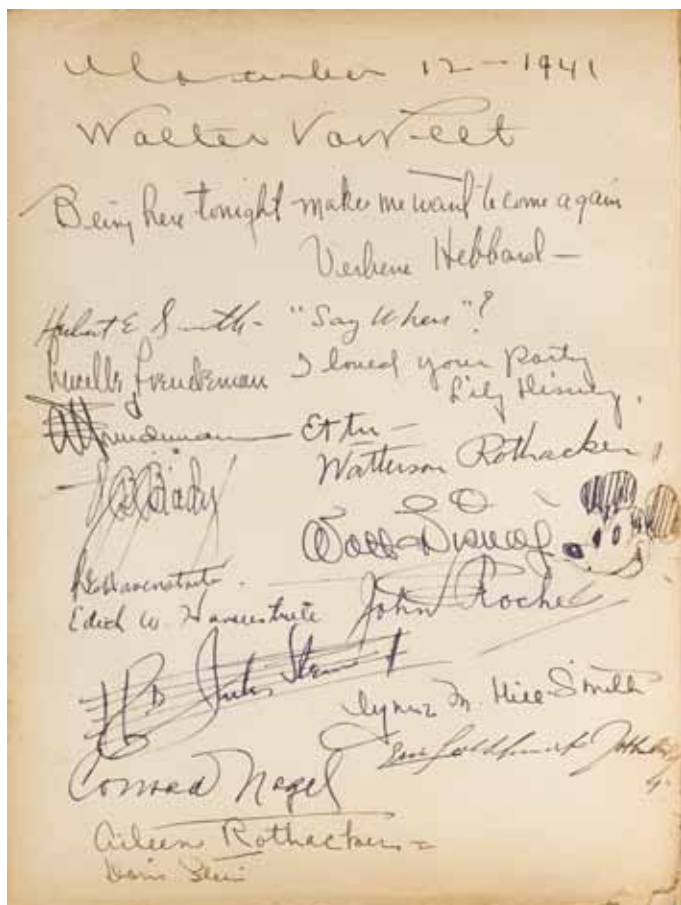 November 12 - 1941
Walter
Being here tonight makes me want to come again
Verbene Hebbard -
Herbert E. Smith - "Say When"?
Lucille Freudeman I loved your party
Lily Disney.
Freudeman Et tu -
Watterson Rothacker
Brady
Walt Disney
Edith W. Havenstrite John Roche
Jules Stein
M. Hill-Smith
Conrad Nagel
Aileen Rothacker
Doris Stein